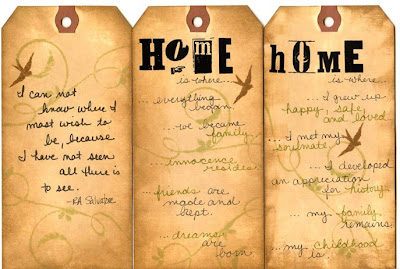 I can not
know where I
most wish to
be, because
I have not seen
all there is
to see.
-RA Salvatore
HOME
is where...
...everything
began.
...we became
family.
...innocence
resides.
...friends are
made and
kept.
...dreams
are
born
hOME
is where...
...I grew up
happy, safe,
and loved.
...I met my
soulmate.
...I developed
an appreciation
for history.
...my family
remains.
...my childhood
is.